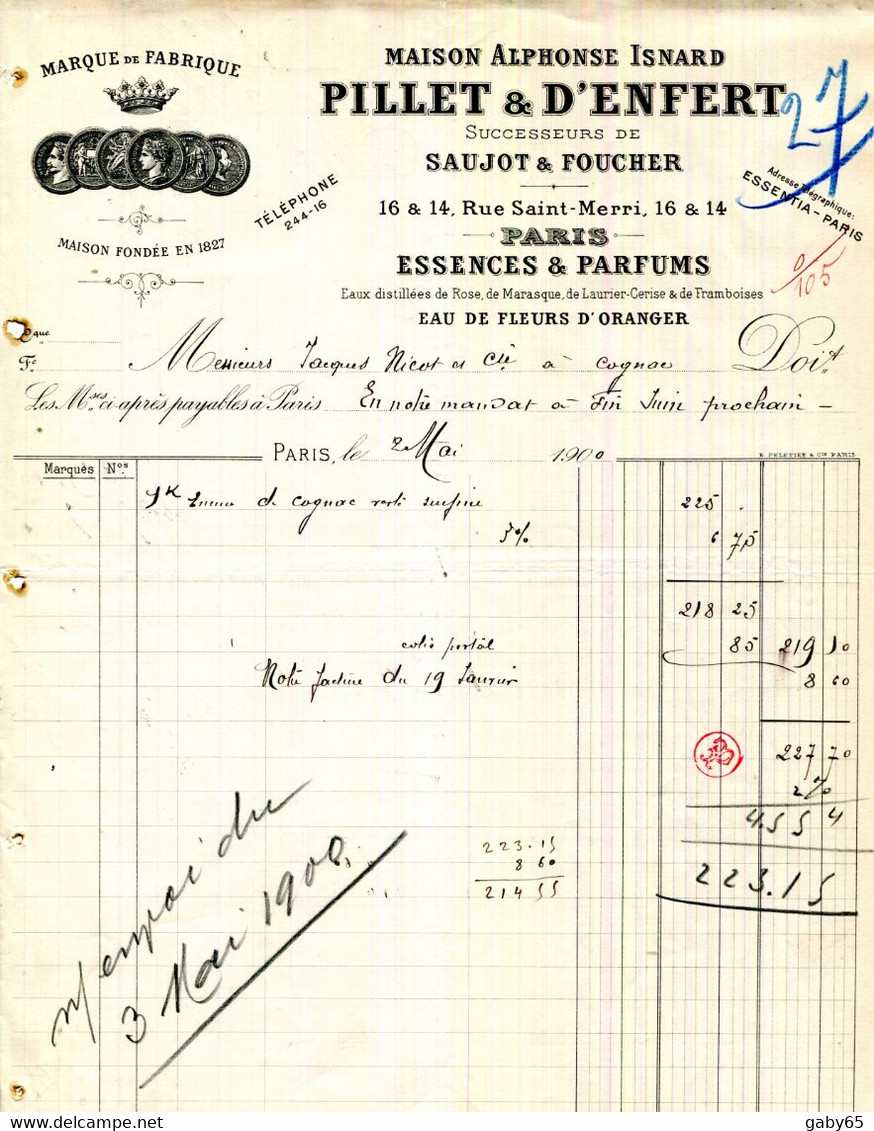 MARQUE DE FABRIQUE
MAISON FONDÉE EN 1827
TÉLÉPHONE
244-16
MAISON ALPHONSE ISNARD
PILLET & D'ENFERT
SUCCESSEURS DE
SAUJOT & FOUCHER
16 & 14, Rue Saint-Merri, 16 & 14
PARIS
ESSENCES & PARFUMS
Eaux distillées de Rose, de Marasque, de Laurier-Cerise & de Framboises
EAU DE FLEURS D'ORANGER
27
Adresse Télégraphique:
ESSENTIA-PARIS
0/105
Messieurs Jacques Nicot et Cie à Cognac Doit
Les Mses ci-après payables à Paris En notre mandat à Fin Juin prochain -
PARIS, le 2 Mai 1900
E. PELETIER & Cie PARIS
Marques Nos
1K de cognac surfine 225 .
3% 6 75
218 25
colis postal 85 219 10
Notre facture du 19 Janvier 8 60
227 70
2%
4.55 4
223.15
223.15
8 60
214 55
n/ envoi du
3 Mai 1900
delcampe.net
gaby65